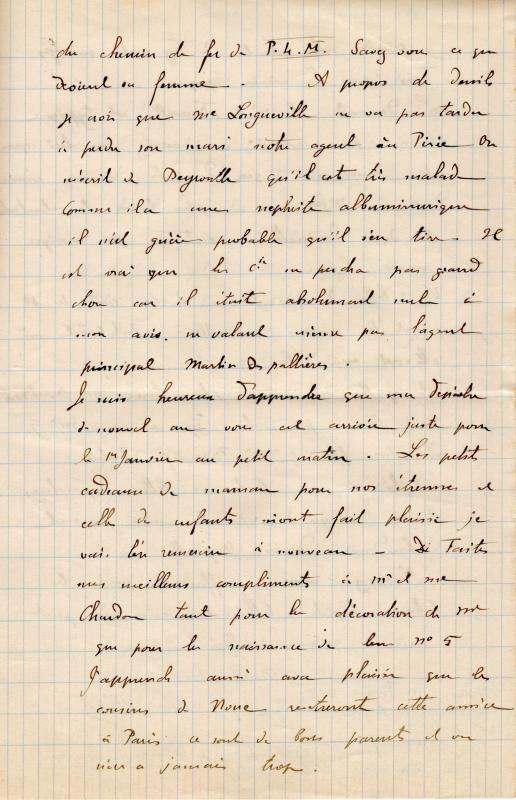 du chemin de fer de P.L.M. Savez vous ce que
devient sa femme. A propos de deuils
je crois que Me Longueville ne va pas tarder
à perdre son mari notre agent au Pirée On
m'écrit de Beyrouth qu'il est très malade
Comme il a une nephrite albuminurique
il n'est guère probable qu'il s'en tire - Il
est vrai que la Cie ne perdra pas grand
chose car il était absolument nul à
mon avis. ne valant même pas l'agent
principal Martin des pallières.
Je suis heureux d'apprendre que ma dépêche
de nouvel an vous est arrivée juste pour
le 1er Janvier au petit matin. Les petits
cadeaux de maman pour nos étrennes et
celle de enfants m'ont fait plaisir je
vais l'en remercier à nouveau - Faites
mes meilleurs compliments à Mr et me
Chardon tant pour la décoration de Mr
que pour la naissance de leur no 5
J'apprends aussi avec plaisir que les
cousins de Noue rentreront cette année
à Paris ce sont de bons parents et on
n'en a jamais trop.